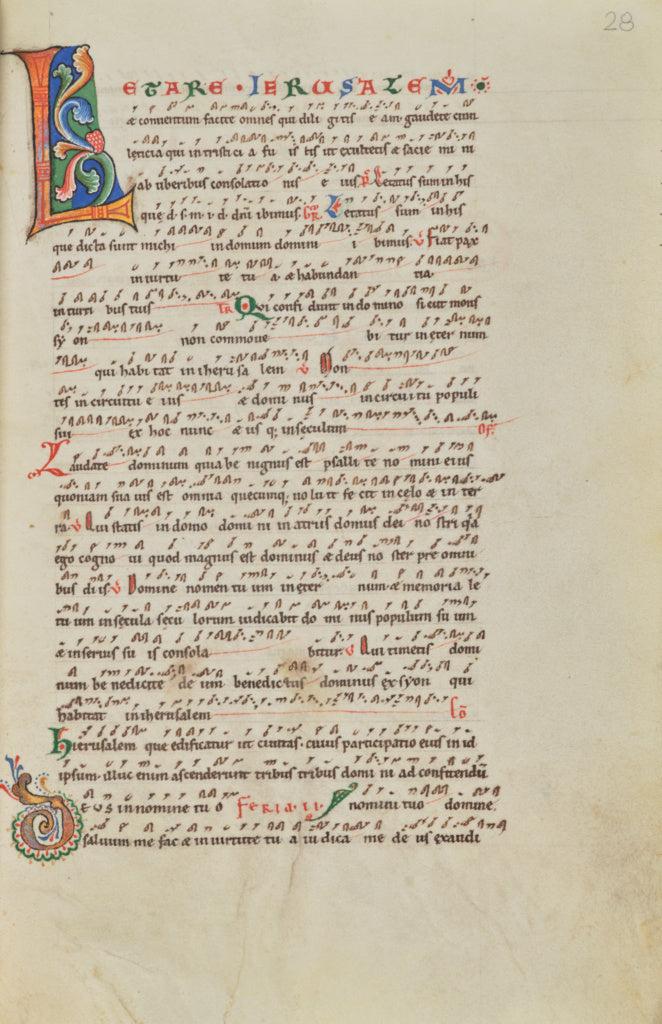 28
LETARE · IERUSALEM
& conventum facite omnes qui dili gitis e am. gaudete cum
leticia qui in tristici a fu is tis ut exultetis & sacie mi ni
ab uberibus consolatio nis e ius ps Letatus sum in his
que d. s. m. i. d. dñi ibimus. Gr. Letatus sum in his
que dicta sunt michi in domum domini i bimus. V Fiat pax
in virtu te tu a & habundan tia.
in turri bus tuis Tr Qvi confi dunt in do mino si cut mons
sy on non commove bi tur in eter num
qui habi tat in iheru sa lem V Mon
tes in circuitu e ius & domi nus in circui tu populi
sui ex hoc nunc & us q; in seculum Of.
Laudate dominum quia be nignus est psalli te no mini eius
quoniam sua vis est omnia quecumq; vo lu it fe cit in celo & in ter
ra V Qui statis in domo domi ni in atriis domus dei no stri q̃a
ego cogno vi quod magnus est dominus & deus no ster pre omni
bus diis V Domine nomen tu um in eter num & memoria le
tu um in secula secu lorum iudicabit do mi nus populum su um
& in servis su is consola bitur. V Qui timetis domi
num be nedicite de um benedictus dominus ex syon qui
habitat in iherusalem Cõ
Hierusalem que edificatur ut civitas. cuius participatio eius in id
ipsum. illuc enim ascenderunt tribus tribus domi ni ad confitendũ
nomini tuo domine.
FERIA .II.
DEUS in nomine tu o
salvum me fac & in virtute tu a iu dica me de us exaudi